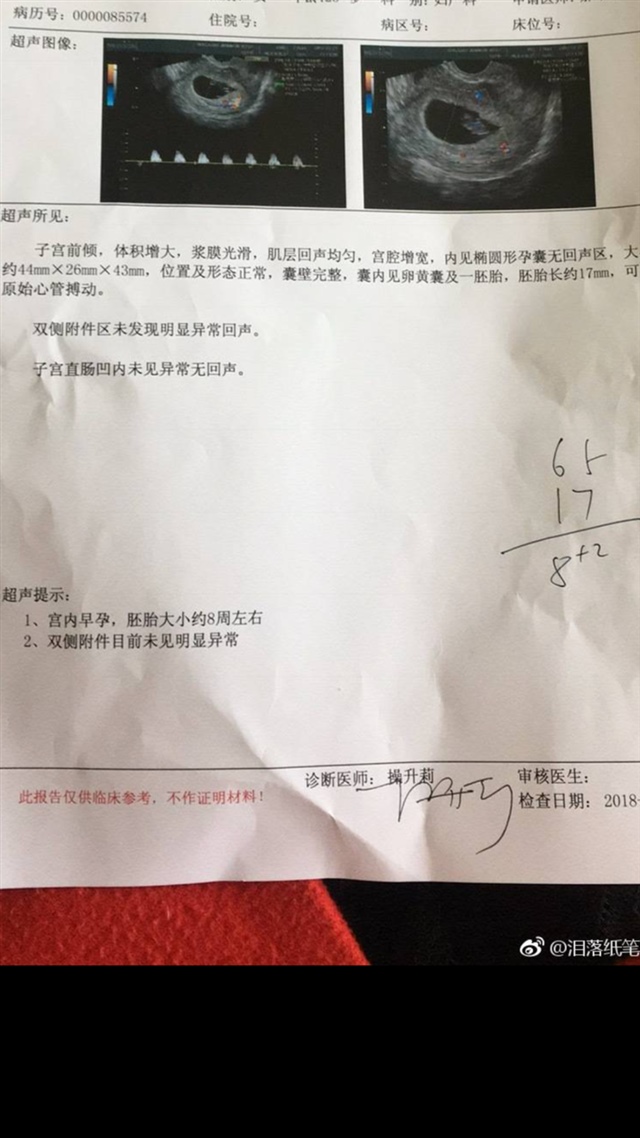 病历号: 0000085574
住院号:
病区号:
床位号:
超声图像:
超声所见:
子宫前倾，体积增大，浆膜光滑，肌层回声均匀，宫腔增宽，内见椭圆形孕囊无回声区，大
约44mm×26mm×43mm，位置及形态正常，囊壁完整，囊内见卵黄囊及一胚胎，胚胎长约17mm，可
原始心管搏动。
双侧附件区未发现明显异常回声。
子宫直肠凹内未见异常无回声。
65
17
8+2
超声提示:
1、宫内早孕，胚胎大小约8周左右
2、双侧附件目前未见明显异常
诊断医师: 操升莉
审核医生:
此报告仅供临床参考，不作证明材料！
检查日期: 2018-
@泪落纸笔